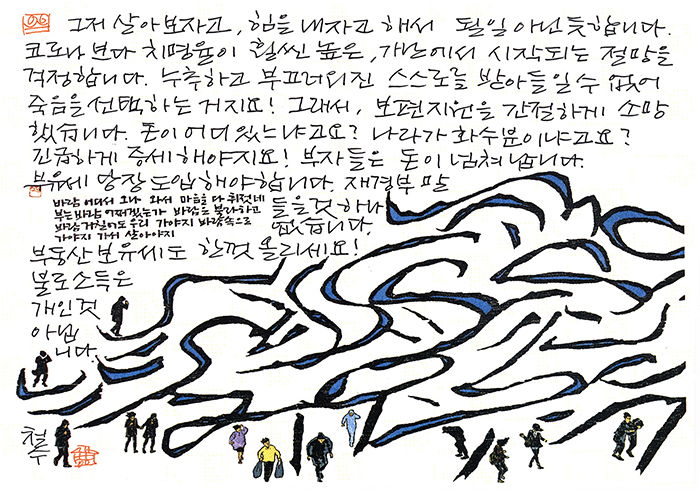 그저 살아보자고, 힘을 내자고 해서 될일 아닌듯합니다.
코로나 보다 치명율이 훨씬 높은, 가난에서 시작되는 절망을
걱정합니다. 누추하고 부끄러워진 스스로를 받아들일수 없어
죽음을 선택하는 거지요! 그래서, 보편지원을 간절하게 소망
했습니다. 돈이 어디있느냐고요? 나라가 화수분이냐고요?
긴급하게 증세해야지요! 부자들은 돈이 넘쳐납니다.
부유세 당장 도입해야합니다. 재경부 말
들을것 하나
없습니다.
바람 어디서 오나 와서 마음을 다 휘젓네
부는바람 어쩌겠는가 바람은 불라하고
바람 거칠어도 우리 가야지 바람속으로
가야지 가서 살아야지
부동산 보유세도 한껏 올리세요!
불로소득은
개인것
아닙
니다.
철
수